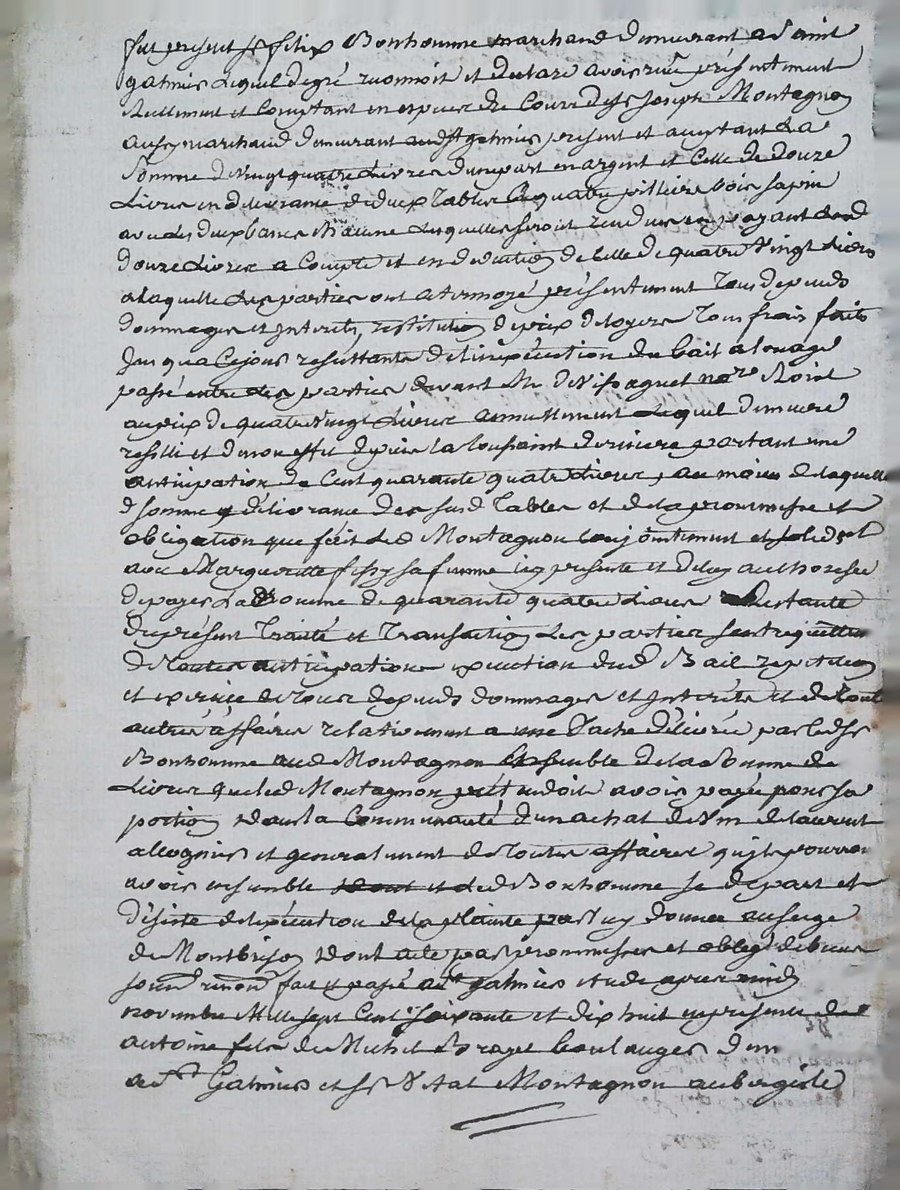 fut present sr felix Bonhomme marchand demeurant a Saint
galmier Lequel de gré reconnoit et declare avoir receu présentement
Reellement et Comptant en especes de Cours de sr Joseph Montagnon
aussy marchand demeurant aud St galmier present et aceptant La
Somme de Vingt quatre Livres d'une part en argent et Celle de douze
Livres en delivrance de deux Tables a quatre pilliers bois sapin
avec Les deux bancs Chacune Lesquelles seront rendues en payant Lesd
douze Livres a Compte et en deduction de Celle de quatre Vingt Livres
a laquelle Les parties ont atermoyé présentement Tous depends
dommages et Interets, restitution de prix de loyers Tous frais faits
Jusqua Ce jour resultants de l'inexécution du bait a louage
passé entre Les parties devant Me not re Roial
au prix de quatre Vingt Livres annuellement Lequel demeure
resilli et de non effet depuis la toussaint derniere partant une
anticipation de Cent quarante quatre Livres, au moien de laquelle
d somme et délivrance des susd Tables et de la promesse et
obligation que fait led Montagnon Conjointement et
avec Margueritte sa femme icy presente et de luy authorisée
de payer Lad Somme de quarante quatre Livres Restante
du présent Traité et Transaction Les parties sentrequittent
de Toutes anticipations execution dud Bail repetition
et exercice de Tous depends dommages et Interéts et de Tout
autres affaires relativement a une Vache délivrée par led sr
Bonhomme aud Montagnon Ensemble de la Somme de
Livres que led Montagnon avoir payée pour sa
portion dans la Communauté d'un achat de Vin de laurent
et generalement de Toutes affaires qu'ils pourroient
avoir ensemble et led Bonhomme se depart et
désiste de l'exécution de la plainte par luy donnée au siege
de Montbrison dont acte par promesses et oblig de biens
soum renon fait et passé a St galmier etude apres midy
novembre Mille sept Cent soixante et dix huit en presence de
antoine fils de Michel boulanger dem
a St Galmier et sr Montagnon aubergiste